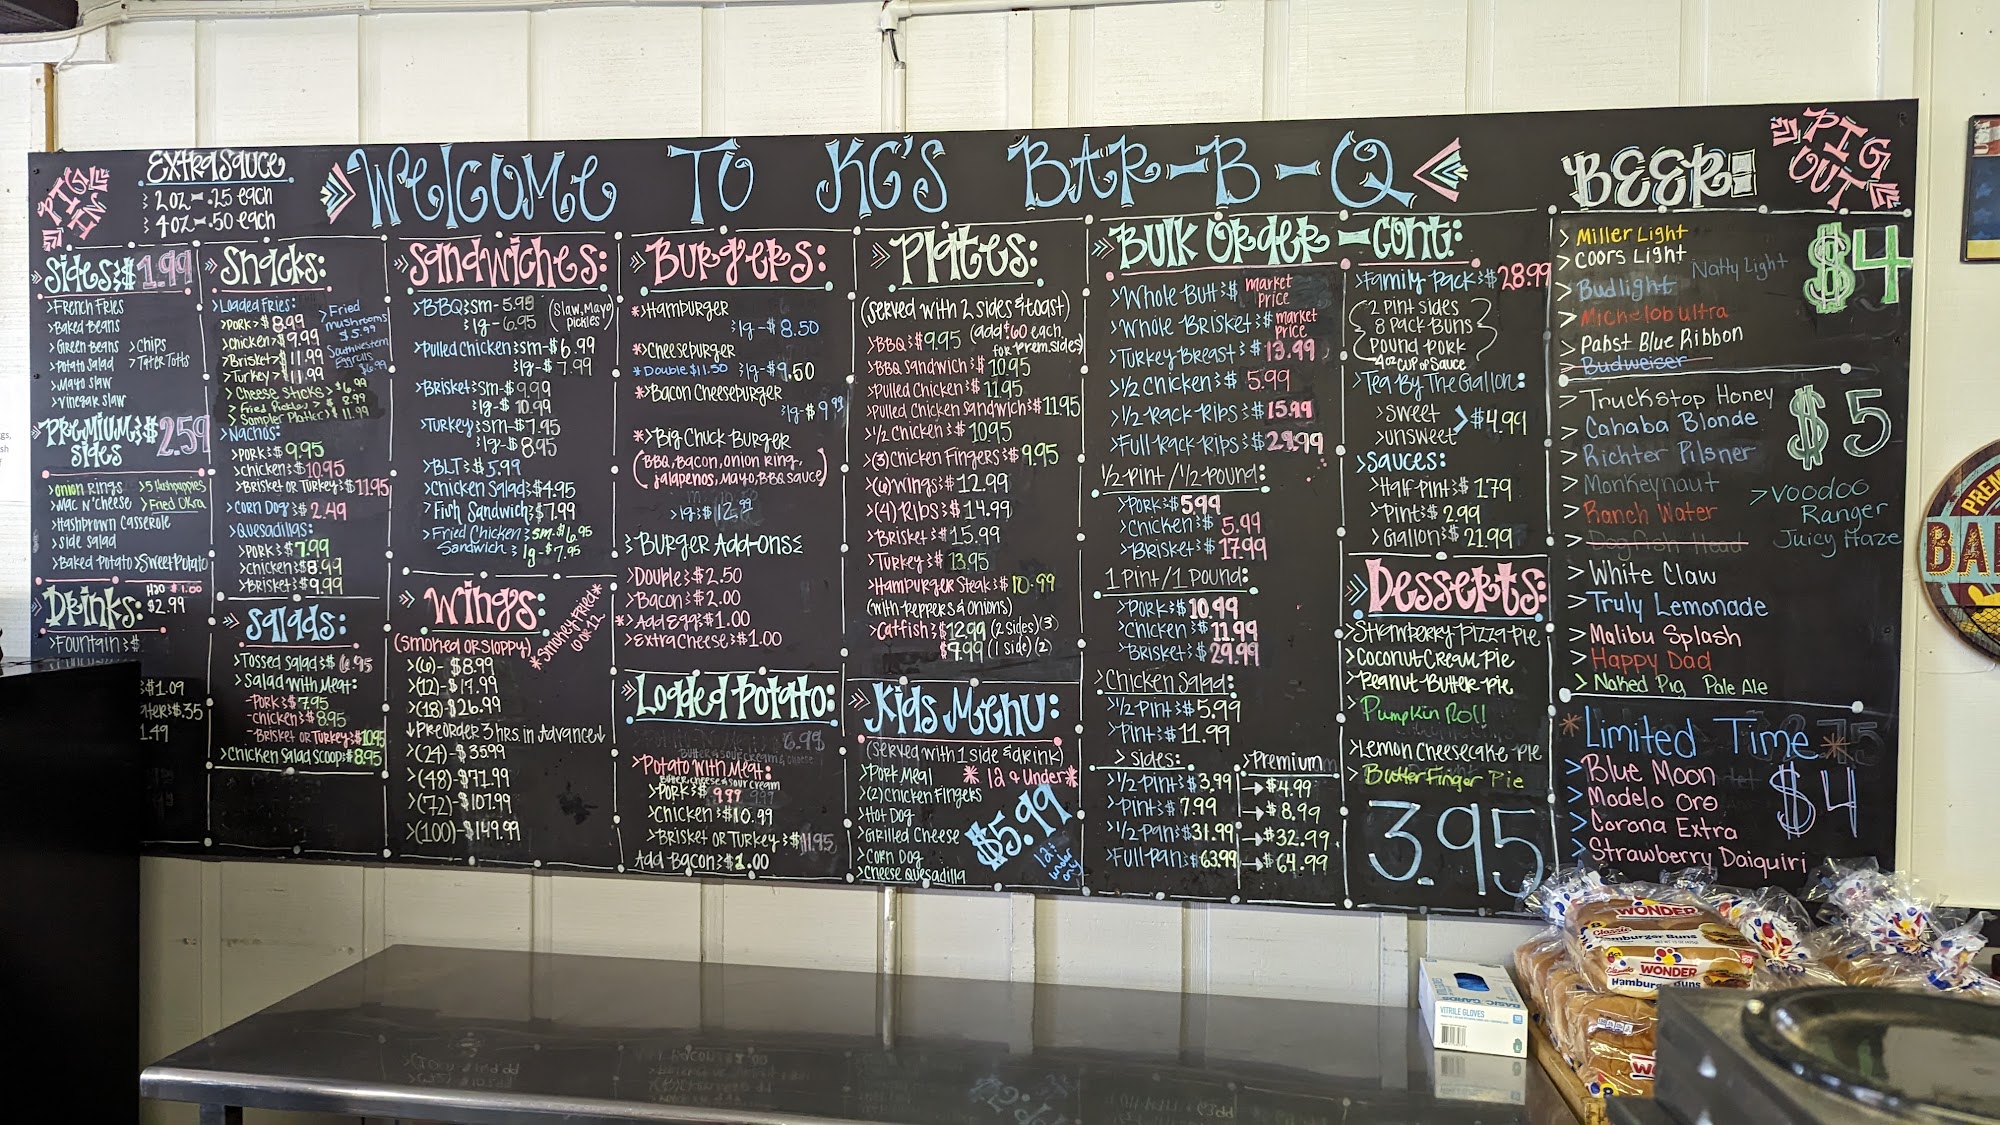 PIG IN
Extra Sauce
2oz - .25 each
4oz - .50 each
Welcome To KG's Bar-B-Q
Sides $1.99
>French Fries
>Baked Beans
>Green Beans >Chips
>Potato Salad >Tater Totts
>Mayo Slaw
>Vinegar Slaw
Premium $2.59
Sides
>Onion Rings >5 Hushpuppies
>Mac N'Cheese >Fried Okra
>Hashbrown Casserole
>Side Salad
>Baked Potato >Sweet Potato
Drinks: H2O $1.00
$2.99
>Fountain $
$1.09
$.35
1.49
Snacks:
>Loaded Fries:
>Pork $8.99
>Chicken $9.99
>Brisket $11.99
>Turkey $11.99
>Cheese Sticks $6.99
>Fried Pickles $8.99
>Sampler Platter $11.99
>Fried mushrooms $5.99
Southwestern Eggrolls $6.99
>Nachos:
>Pork $9.95
>Chicken $10.95
>Brisket or Turkey $11.95
>Corn Dog $2.49
>Quesadillas:
>Pork $7.99
>Chicken $8.99
>Brisket $9.99
Salads:
>Tossed Salad $6.95
>Salad with Meat:
-Pork $7.95
-Chicken $8.95
-Brisket or Turkey $10.95
>Chicken Salad Scoop $8.95
Sandwiches:
>BBQ sm- 5.99 (Slaw, Mayo
lg- 6.95 pickles)
>Pulled Chicken sm- $6.99
lg- $7.99
>Brisket sm- $9.99
lg- $10.99
>Turkey sm- $7.95
lg- $8.95
>BLT $5.99
>Chicken Salad $4.95
>Fish Sandwich $7.99
>Fried Chicken sm- $6.95
Sandwich lg- $7.95
Wings:
(Smoked or Sloppy)
*Smokey Fried*
10 or 12
>(6)- $8.99
>(12)- $17.99
>(18)- $26.99
↓Preorder 3 hrs. in Advance↓
>(24)- $35.99
>(48)- $71.99
>(72)- $107.99
>(100)- $149.99
Burgers:
*Hamburger
lg- $8.50
*>Cheeseburger
*Double $11.50 lg- $9.50
*>Bacon Cheeseburger
lg- $9.99
*>Big Chuck Burger
(BBQ, Bacon, Onion Ring,
Jalapenos, Mayo, BBQ Sauce)
lg $12.99
Burger Add-ons
>Double $2.50
>Bacon $2.00
*>Add Egg $1.00
>Extra Cheese $1.00
Loaded Potato:
>Potato with Meat:
Butter, cheese & sour cream
>Pork $9.99
>Chicken $10.99
>Brisket or Turkey $11.95
Add Bacon $1.00
Plates:
(Served with 2 Sides & Toast)
>BBQ $9.95 (add $.60 each
for Prem. Sides)
>BBQ Sandwich $10.95
>Pulled Chicken $11.95
>Pulled Chicken Sandwich $11.95
>1/2 Chicken $10.95
>(3) Chicken Fingers $9.95
>(6) Wings $12.99
>(4) Ribs $14.99
>Brisket $15.99
>Turkey $13.95
>Hamburger Steak $10.99
(with Peppers & Onions)
>Catfish $12.99 (2 Sides)(3)
$9.99 (1 Side)(2)
Kids Menu:
(Served with 1 Side & Drink)
>Pork Meal *12 & Under*
>(2) Chicken Fingers
>Hot Dog
>Grilled Cheese
>Corn Dog
>Cheese Quesadilla
$5.99
12 & under only
Bulk Order - Cont:
>Whole Butt $ market price
>Whole Brisket $ market price
>Turkey Breast $13.99
>1/2 Chicken $5.99
>1/2 Rack Ribs $15.99
>Full Rack Ribs $29.99
1/2 Pint / 1/2 Pound:
>Pork $5.99
>Chicken $5.99
>Brisket $17.99
1 Pint / 1 Pound:
>Pork $10.99
>Chicken $11.99
>Brisket $29.99
>Chicken Salad:
>1/2 Pint $5.99
>Pint $11.99
>Sides: >Premium
>1/2 Pint $3.99 → $4.99
>Pint $7.99 → $8.99
>1/2 Pan $31.99 → $32.99
>Full Pan $63.99 → $64.99
>Family Pack $28.99
(2 Pint Sides
8 Pack Buns
Pound Pork
4oz Cup of Sauce)
>Tea By The Gallon:
>Sweet
>Unsweet > $4.99
>Sauces:
>Half Pint $1.79
>Pint $2.99
>Gallon $21.99
Desserts:
>Strawberry Pizza Pie
>Coconut Cream Pie
>Peanut Butter Pie
>Pumpkin Roll
>Lemon Cheesecake Pie
>Butter Finger Pie
3.95
BEER:
PIG OUT
>Miller Light
>Coors Light Natty Light
>Budlight
>Michelob Ultra
>Pabst Blue Ribbon
>Budweiser
$4
>Truckstop Honey
>Cahaba Blonde
>Richter Pilsner
>Monkeynaut
>Ranch Water
>Dogfish Head
>White Claw
>Truly Lemonade
>Malibu Splash
>Happy Dad
>Naked Pig Pale Ale
$5
>Voodoo
Ranger
Juicy Haze
*Limited Time*
>Blue Moon
>Modelo Oro
>Corona Extra
>Strawberry Daiquiri
$4
WONDER
Classic
Hamburger Buns
WONDER
Hamburger Buns
BASIC CARDS
VITRILE GLOVES